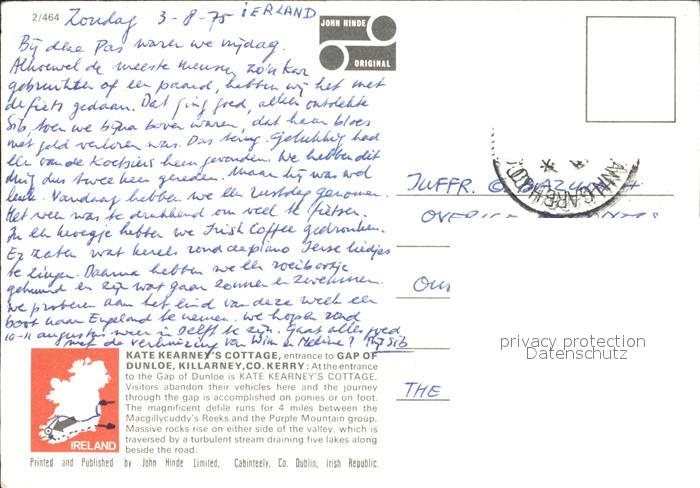 2/464
Zondag 3-8-75 IERLAND
Bij deze Pas waren we vrijdag.
Alhoewel de meeste mensen zo'n kar
gebruikten of een paard, hebben wij het met
de fiets gedaan. Dat ging goed, alleen ontdekte
Sib, toen we bijna boven waren, dat haar bloes
met geld verloren was. Dus terug. Gelukkig had
één van de koetsiers hem gevonden. We hebben dit
ding dus twee keer gereden. Maar hij was wel
leuk. Vandaag hebben we een rustdag genomen.
Het weer was te drukkend om veel te fietsen.
In een kroegje hebben we Irish Coffee gedronken.
Er zaten wat kerels rond de piano Ierse liedjes
te zingen. Daarna hebben we een roeibootje
gehuurd en zijn wat gaan zonnen en zwemmen.
We proberen aan het eind van deze week een
boot naar Engeland te nemen. We hopen rond
10-11 augustus weer in Delft te zijn. Gaat alles goed
met de verhuizing van Wim en ? Sib
JOHN HINDE
ORIGINAL
JUFFR. G.
OVER
OU
THE
privacy protection
Datenschutz
KATE KEARNEY'S COTTAGE, entrance to GAP OF
DUNLOE, KILLARNEY, CO. KERRY: At the entrance
to the Gap of Dunloe is KATE KEARNEY'S COTTAGE.
Visitors abandon their vehicles here and the journey
through the gap is accomplished on ponies or on foot.
The magnificent defile runs for 4 miles between the
Macgillycuddy's Reeks and the Purple Mountain group.
Massive rocks rise on either side of the valley, which is
traversed by a turbulent stream draining five lakes along
beside the road.
IRELAND
Printed and Published by John Hinde Limited, Cabinteely, Co. Dublin, Irish Republic.